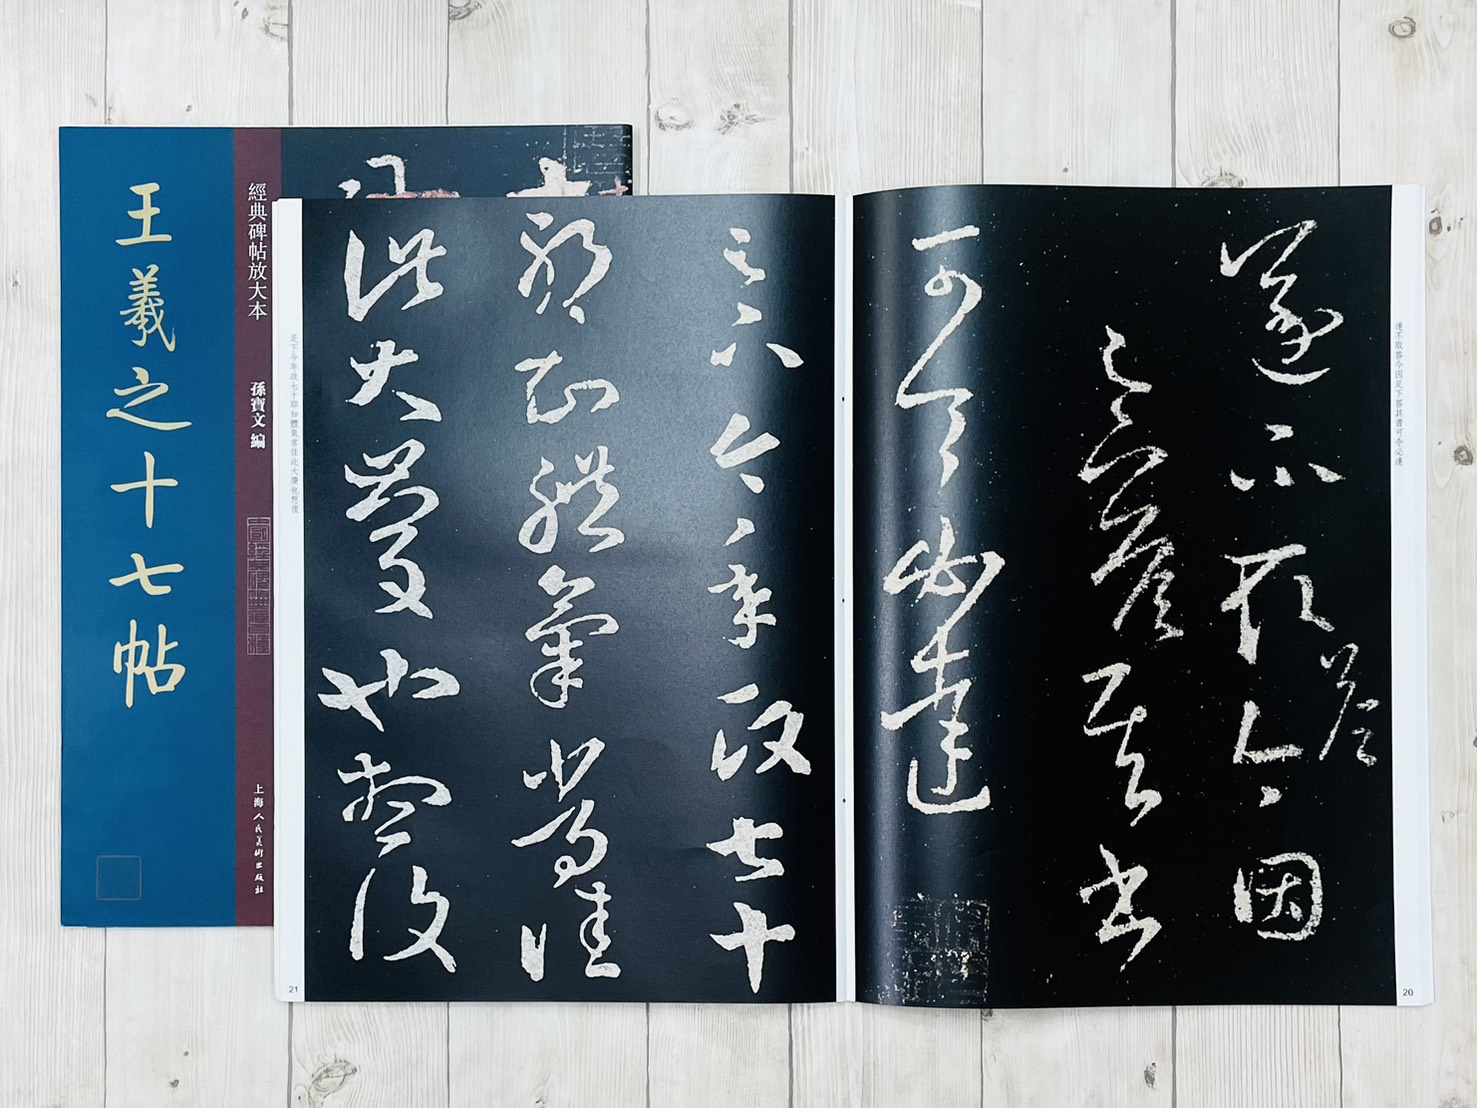 王羲之十七帖
經典碑帖放大本
孫寶文 編
上海人民美術出版社
遂不取答今因足下答其書可令必達
遂不取答今因
足下答其書
可令必達
20
足下今年政七十
耶知體氣常佳
此大慶也想復
足下今年政七十耶知體氣常佳此大慶也想復
21